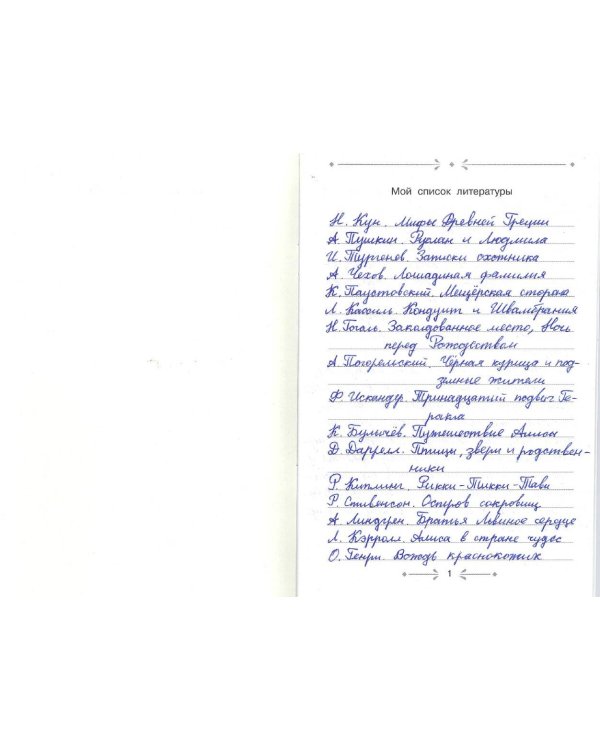 Мой список литературы
Н. Кун. Мифы Древней Греции
А. Пушкин. Руслан и Людмила
И. Тургенев. Записки охотника
А. Чехов. Лошадиная фамилия
К. Паустовский. Мещёрская сторона
Л. Кассиль. Кондуит и Швамбрания
Н. Гоголь. Заколдованное место, Ночь
перед Рождеством
А. Погорельский. Чёрная курица и под-
земные жители
Ф. Искандер. Тринадцатый подвиг Ге-
ракла
К. Булычёв. Путешествие Алисы
Д. Даррелл. Птицы, звери и родствен-
ники
Р. Киплинг. Рикки-Тикки-Тави
Р. Стивенсон. Остров сокровищ
А. Линдгрен. Братья Львиное сердце
Л. Кэрролл. Алиса в стране чудес
О. Генри. Вождь краснокожих
1